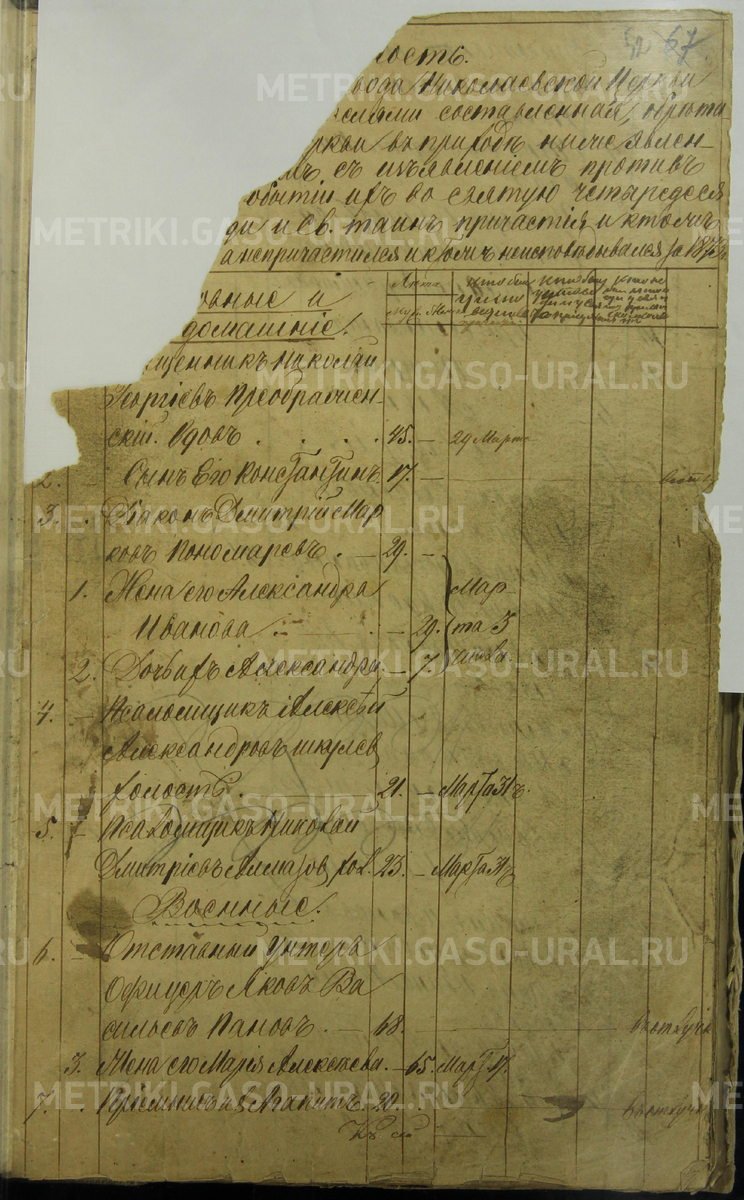 67
ость.
вода Николаевской Церкви
слями составленная,
ркви въ приходѣ ниже явлен-
мъ, съ изъявленіемъ противъ
бытіи ихъ во святую четыредеся
ди и Св. таинъ причастія и ктожъ
а непричастился и ктожъ неисповѣдывался за
Лѣта
Муж. Жен.
овные и
домашніе.
щенникъ Николай
Георгіевъ Преображен-
скій. Вдовъ . . . . 45. — 29 Марта
2. Сынъ Его Константинъ 17. —
3. Діаконъ Дмитрій Мар
ковъ Пономаревъ. — 29. —
1. Жена его Александра Мар
Иванова — 29. та 3
2. Дочь ихъ Александра — 7. числа.
4. — Псаломщикъ Алексѣй
Александровъ Шкулев
холостъ. 21. — Марта 31ъ.
5. — Псаломщикъ Николай
Дмитріевъ Алмазов, хол. 23. — Марта 31ъ
Военные.
6. — Отставный Унтеръ
Офицеръ Яковъ Ва
сильевъ Пановъ. — 68. въ отлучкѣ
3. Жена его Марія Алексѣева. — 65. Март 17.
7. Пріемышъ ихъ Агапитъ 20. въ отлучкѣ
METRIKI.GASO-URAL.RU